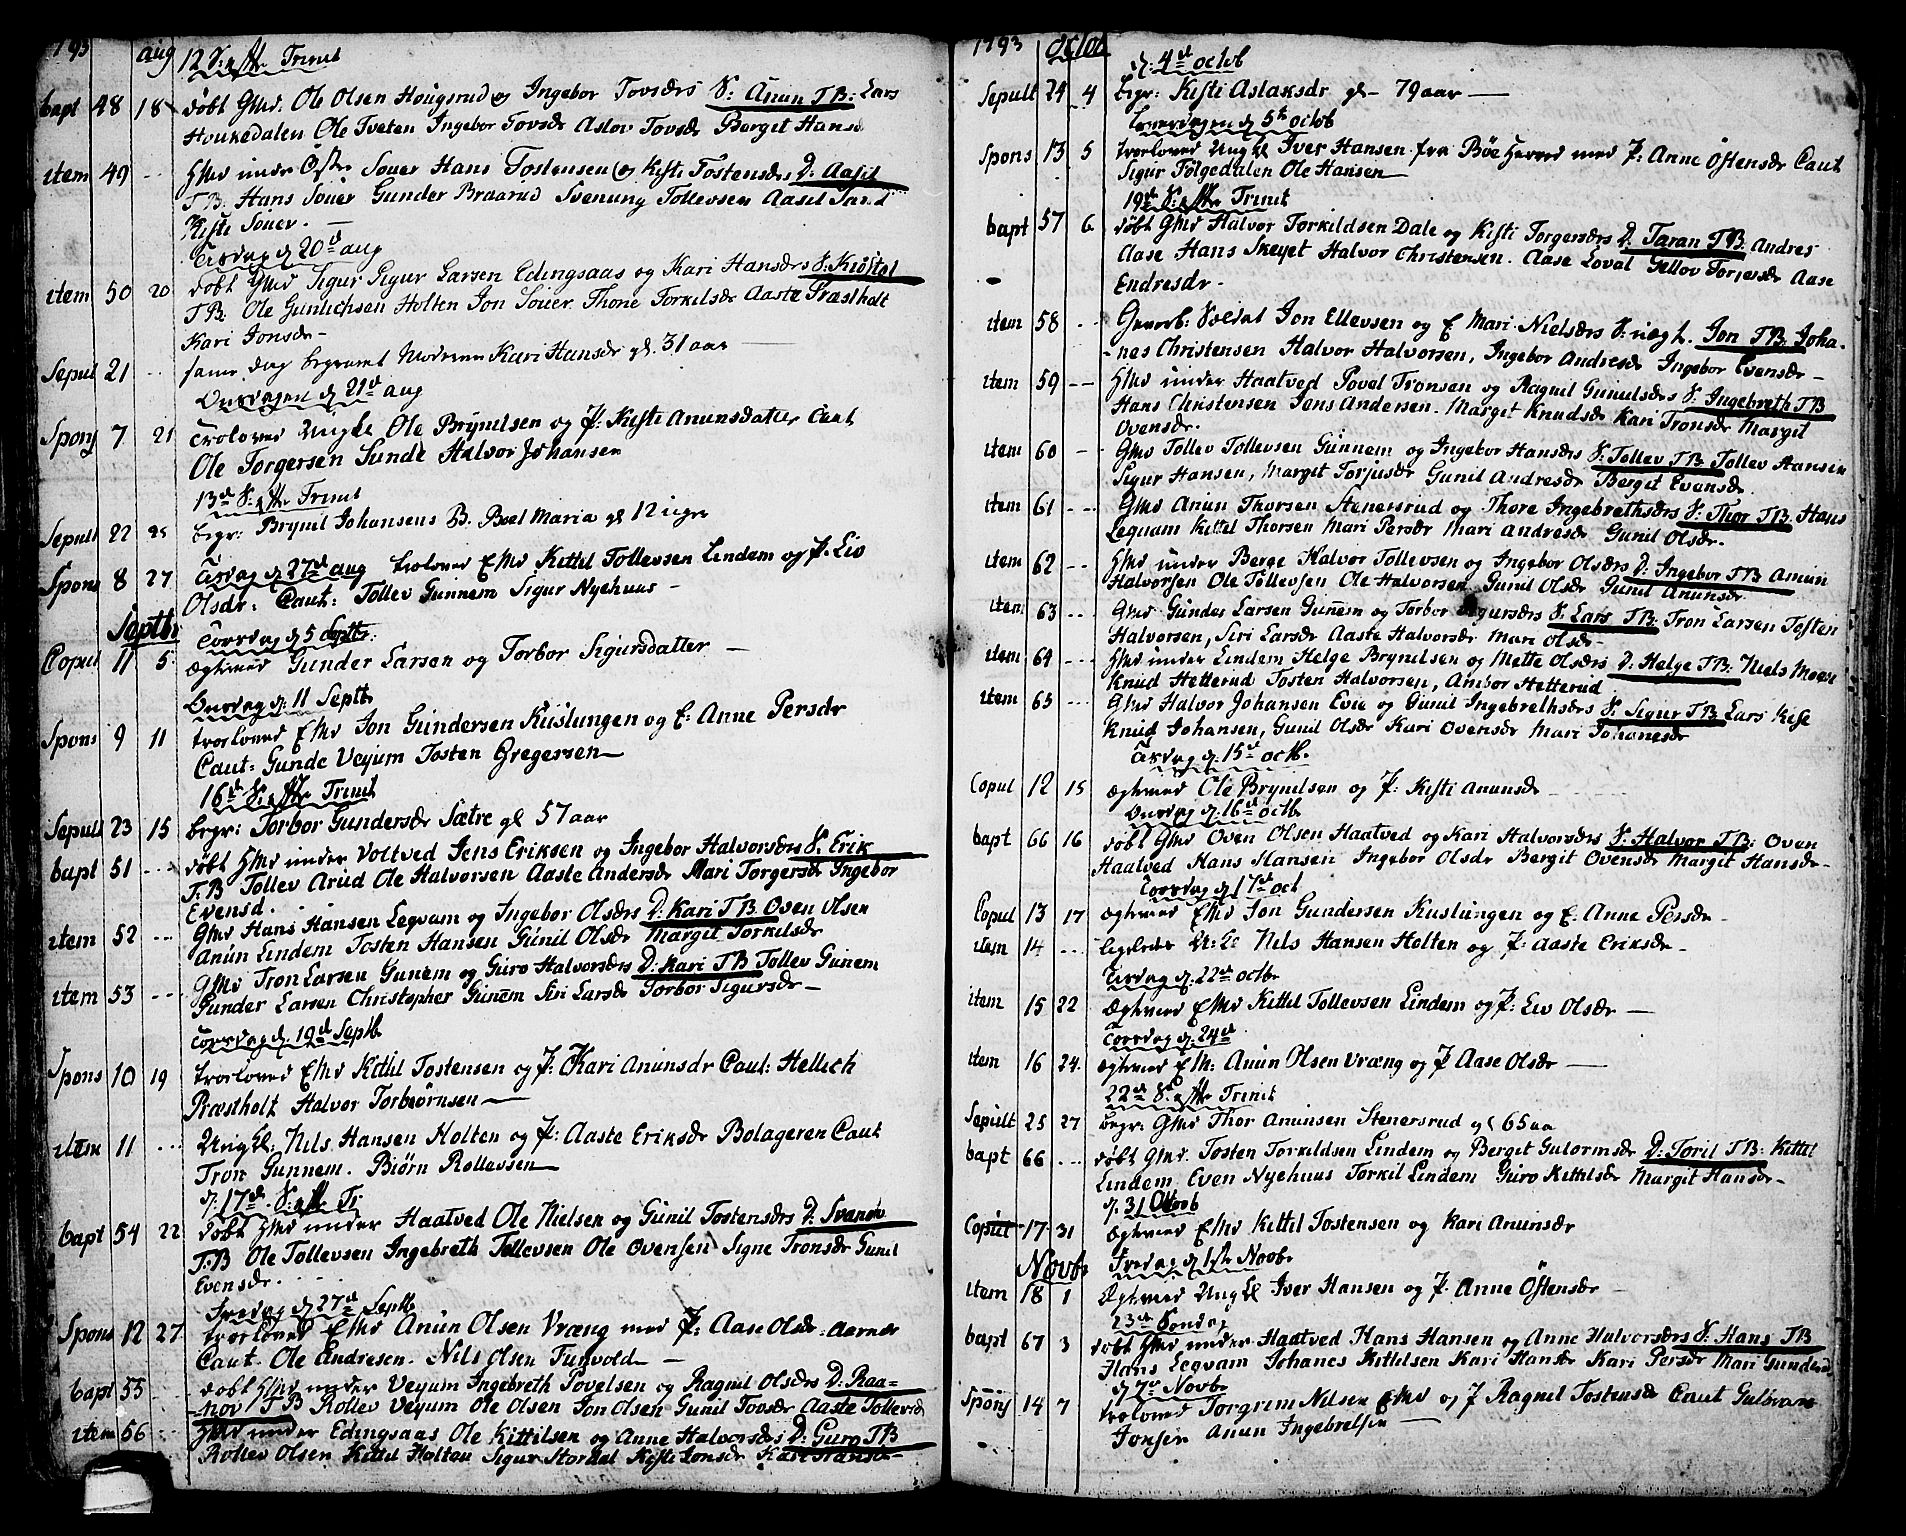 1793 aug 12 S: efter Trinit
bapt 48 18 døbt Gmd. Ole Olsen Hougsrud og Ingebor Tovsdrs S: Anun TB: Lars
Houkedalen Ole Tveten Ingebor Tovsdr Aslov Tovsdr Bergit Hansd
item 49 -- Hmd under Ostre Souer Hans Tostensen og Kisti Tostensdrs D: Aasil
TB: Hans Souer Gunder Braarud Svenung Tollevsen Aasil Sand
Kisti Souer. —
Tirsdag d 20de aug
item 50 20 døbt Gmd Sigur Sigur Larsen Edingsaas og Kari Hansdrs S: Kiøstol
TB: Ole Gunlichsen Holten Jon Souer Thone Torkilsdr Aaste Præstholt
Kari Jonsdr —
Sepul 21 -- same dag begravet Moderen Kari Hansdr gl. 31 aar —
Onsdagen d 21de aug
Spons 7 21 Troloved Ungkl Ole Brynilsen og P: Kisti Anunsdatter Caut
Ole Torgersen Sunde Halvor Johansen
13de S: efter Trinit
Sepult 22 25 begr: Brynil Johansens B. Boel Maria gl 12 uger
Spons 8 27 Tirsdag d 27de aug troloved EMd Kittil Tollevsen Lindem og P. Liv
Olsdr: Caut: Tollev Gunnem Sigur Nyehuus —
Septbr
Torsdag d 5 Septbr:
Copul 11 5 Ægteviet Gunder Larsen og Torbor Sigursdatter —
Onsdag d: 11 Septb
Spons 9 11 troloved EMd Jon Gundersen Kuslungen og E: Anne Persdr
Caut: Gunde Veyum Tosten Gregersen —
16de S: efter Trinit
Sepult 23 15 begr: Torbor Gundersdr Sætre gl 57 aar
bapt 51 --- døbt Hmd under Voltved Jens Eriksen og Ingebor Halvorsdrs S. Erik
T.B Tollev Arud Ole Halvorsen Aaste Andersdr Mari Torgersdr Ingebor
Evensd.
item 52 --- GMd Hans Hansen Legvam og Ingebor Olsdrs D: Kari TB Oven Olsen
Anun Lindem Tosten Hansen Gunil Olsdr Margit Torkilsdr
item 53 --- GMd Tron Larsen Gunem og Guro Halvorsdrs D: Kari TB Tollev Gunem
Gunder Larsen Christopher Gunem Siri Larsdr Torbor Sigursdr —
Torsdag d. 19de Septb
Spons 10 19 troloved EMd Kittil Tostensen og P: Kari Anunsdr Caut: Hellich
Præstholt Halvor Torbiørnsen —
item 11 --- Ungkl: Nils Hansen Holten og P: Aaste Eriksdr Bolageren Caut
Tron Gunnem. Biørn Rollevsen —
d: 17de S: efter Tr
bapt 54 22 døbt Hmd under Haatved Ole Nielsen og Gunil Tostensdrs D: Svanov
T:B Ole Tollevsen Ingebreth Tollevsen Ole Ovensen Signe Tronsdr Gunil
Evensdr.
Fredag d 27de Septb
Spons 12 27 troloved EMd Anun Olsen Vræng med P: Aase Olsdr Aarnes
Caut. Ole Andresen. Nils Olsen Funvold —
bapt 55 --- døbt Hmd under Veyum Ingebreth Povelsen og Ragnil Olsdrs D: Raa-
nov TB Rollev Veyum Ole Olsen Jon Olsen Gunil Tovsdr Aaste Tollevsd
item 56 -- Hmd under Edingsaas Ole Kittilsen og Anne Halvorsdrs D: Guro TB
Rollev Olsen Kittil Holtan Sigur Stordal Kisti Jonsdr Kari Transdr —
1793 octob
d: 4de octob
Sepult 24 4 begr: Kisti Aslaksdr gl — 79 aar —
Løverdagen d 5te octob
Spons 13 5 troloved Ungkl Iver Hansen fra Bøe Herred med P: Anne Østensdr Caut
Sigur Følgedalen Ole Hansen —
19de S: efter Trinit
bapt 57 6 døbt GMd Halvor Torkildsen Dale og Kisti Torgersdrs D: Taran TB: Andres
Aase Hans Skeyet Halvor Christensen. Aase Loval Gellov Torjersdr Aase
Endresdr —
item 58 --- Gevorb: Soldat Jon Ellevsen og E. Mari Nielsdrs S: uægt. Jon TB: Joha-
-nes Christensen Halvor Halvorsen, Ingebor Andresdr Ingebor Evensdr —
item 59 --- Hmd under Haatved Povel Tronsen og Ragnil Gunulsdrs S: Ingebreth TB
Hans Christensen Jens Andersen. Margit Knudsdr Kari Tronsdr Margit
Ovensdr.
item 60 --- GMd Tollev Tollevsen Gunnem og Ingebor Hansdrs S: Tollev TB Tollev Hansen
Sigur Hansen, Margit Torjusdr Gunil Andresdr Bergit Evensdr
item 61 --- GMd Anun Thorsen Stenersrud og Thore Ingebrethsdrs S: Thor TB: Hans
Legvam Kittil Thorsen Mari Persdr Mari Andresdr Gunil Olsdr.
item 62 --- Hmd under Berge Halvor Tollevsen og Ingebor Olsdrs D: Ingebor TB Anun
Halvorsen Ole Tollevsen Ole Halvorsen Gunil Olsdr Gunil Anunsdr
item 63 --- GMd Gunder Larsen Gunem og Torbor Sigursdrs S: Lars TB: Tron Larsen Tosten
Halvorsen, Siri Larsdr Aaste Halvorsdr Mari Olsdr —
item 64 --- Hmd under Lindem Helge Brynilsen og Mette Olsdrs D: Helge TB: Niels Moen
Knud Hetterud Tosten Halvorsen, Ambor Hetterud
item 65 GMd Halvor Johansen Evie og Gunil Ingebrethsdrs S. Sigur TB Lars Kise
Knud Johansen, Gunil Olsdr Kari Ovensdr Mari Johanesdr
Tirsdag d: 15de octb.
Copul 12 15 Ægteviet Ole Brynilsen og P: Kisti Anunsdr
Onsdag d. 16de octb
bapt 66 16 døbt GMd Oven Olsen Haatved og Kari Halvorsdrs S: Halvor TB: Oven
Haatved Hans Hansen Ingebor Olsdr Bergit Ovensdr Margit Hansdr —
Torsdag d 17de oct
Copul 13 17 Ægteviet EMd Jon Gundersen Kuslungen og E: Anne Persdr —
item 14 --- ligeledes Ukl Nils Hansen Holten og P: Aaste Eriksdr —
Tirsdag d: 22de octbr
item 15 22 Ægteviet EMd Kittil Tollevsen Lindem og P: Liv Olsdr —
Torsdag d: 24de
item 16 24. Ægteviet EM: Anun Olsen Vræng og P Aase Olsdr —
22de S. efter Trinit
Sepult 25 27 begr: GMd Thor Anunsen Stenersrud gl 65 aa
bapt 66 --- døbt GMd. Tosten Torkildsen Lindem og Bergit Gulormsdr D: Toril TB: Kittil
Lindem Even Nyehuus Torkil Lindem Guro Kittilsdr Margit Hansdr —
d: 31 Octob
Copul 17 31 Ægteviet EMd Kittil Tostensen og Kari Anunsdr
Novb: Fredag d 1ste Novbr
item 18 1 Ægteviet Ungkl Iver Hansen og P Anne Østensdr —
23de Søndag
bapt 67 3 døbt Hmd under Haatved Hans Hansen og Anne Halvorsdrs S: Hans TB
Hans Legvam Johanes Kittilsen Kari Hansdr Kari Persdr Mari Gundersd
d 7de Novbr
Spons 14 7 troloved Torgrim Nilsen EMd og P Ragnil Tostensdr Caut Gulovam
Jonsen Anun Ingebretsen —